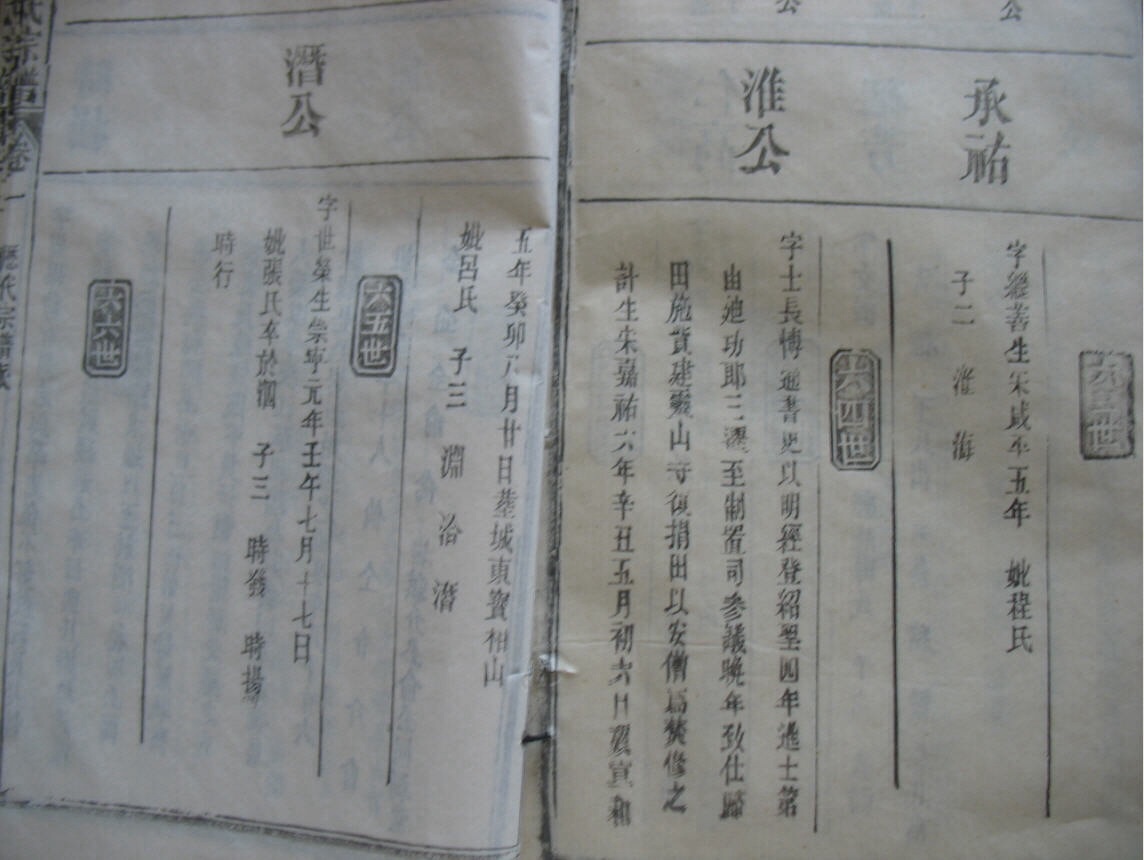 公
公
六三世
承祐
字繼善生宋咸平五年　妣程氏
子二　淮　海
六四世
淮公
字士長博通書史以明經登紹聖四年進士第
由迪功郎三遷至制置司參議晚年致仕歸
田施貲建靈山寺復捐田以安僧爲焚修之
計生宋嘉祐六年辛丑五月初六日歿宣和
五年癸卯八月廿日塟城東寳相山
妣呂氏　子三　淵　洽　潛
六五世
潛公
字世榮生崇寧元年壬午七月十七日
妣張氏卒於泗　子三　時發　時揚
時行
六六世
氏宗譜
卷一
氏宗譜